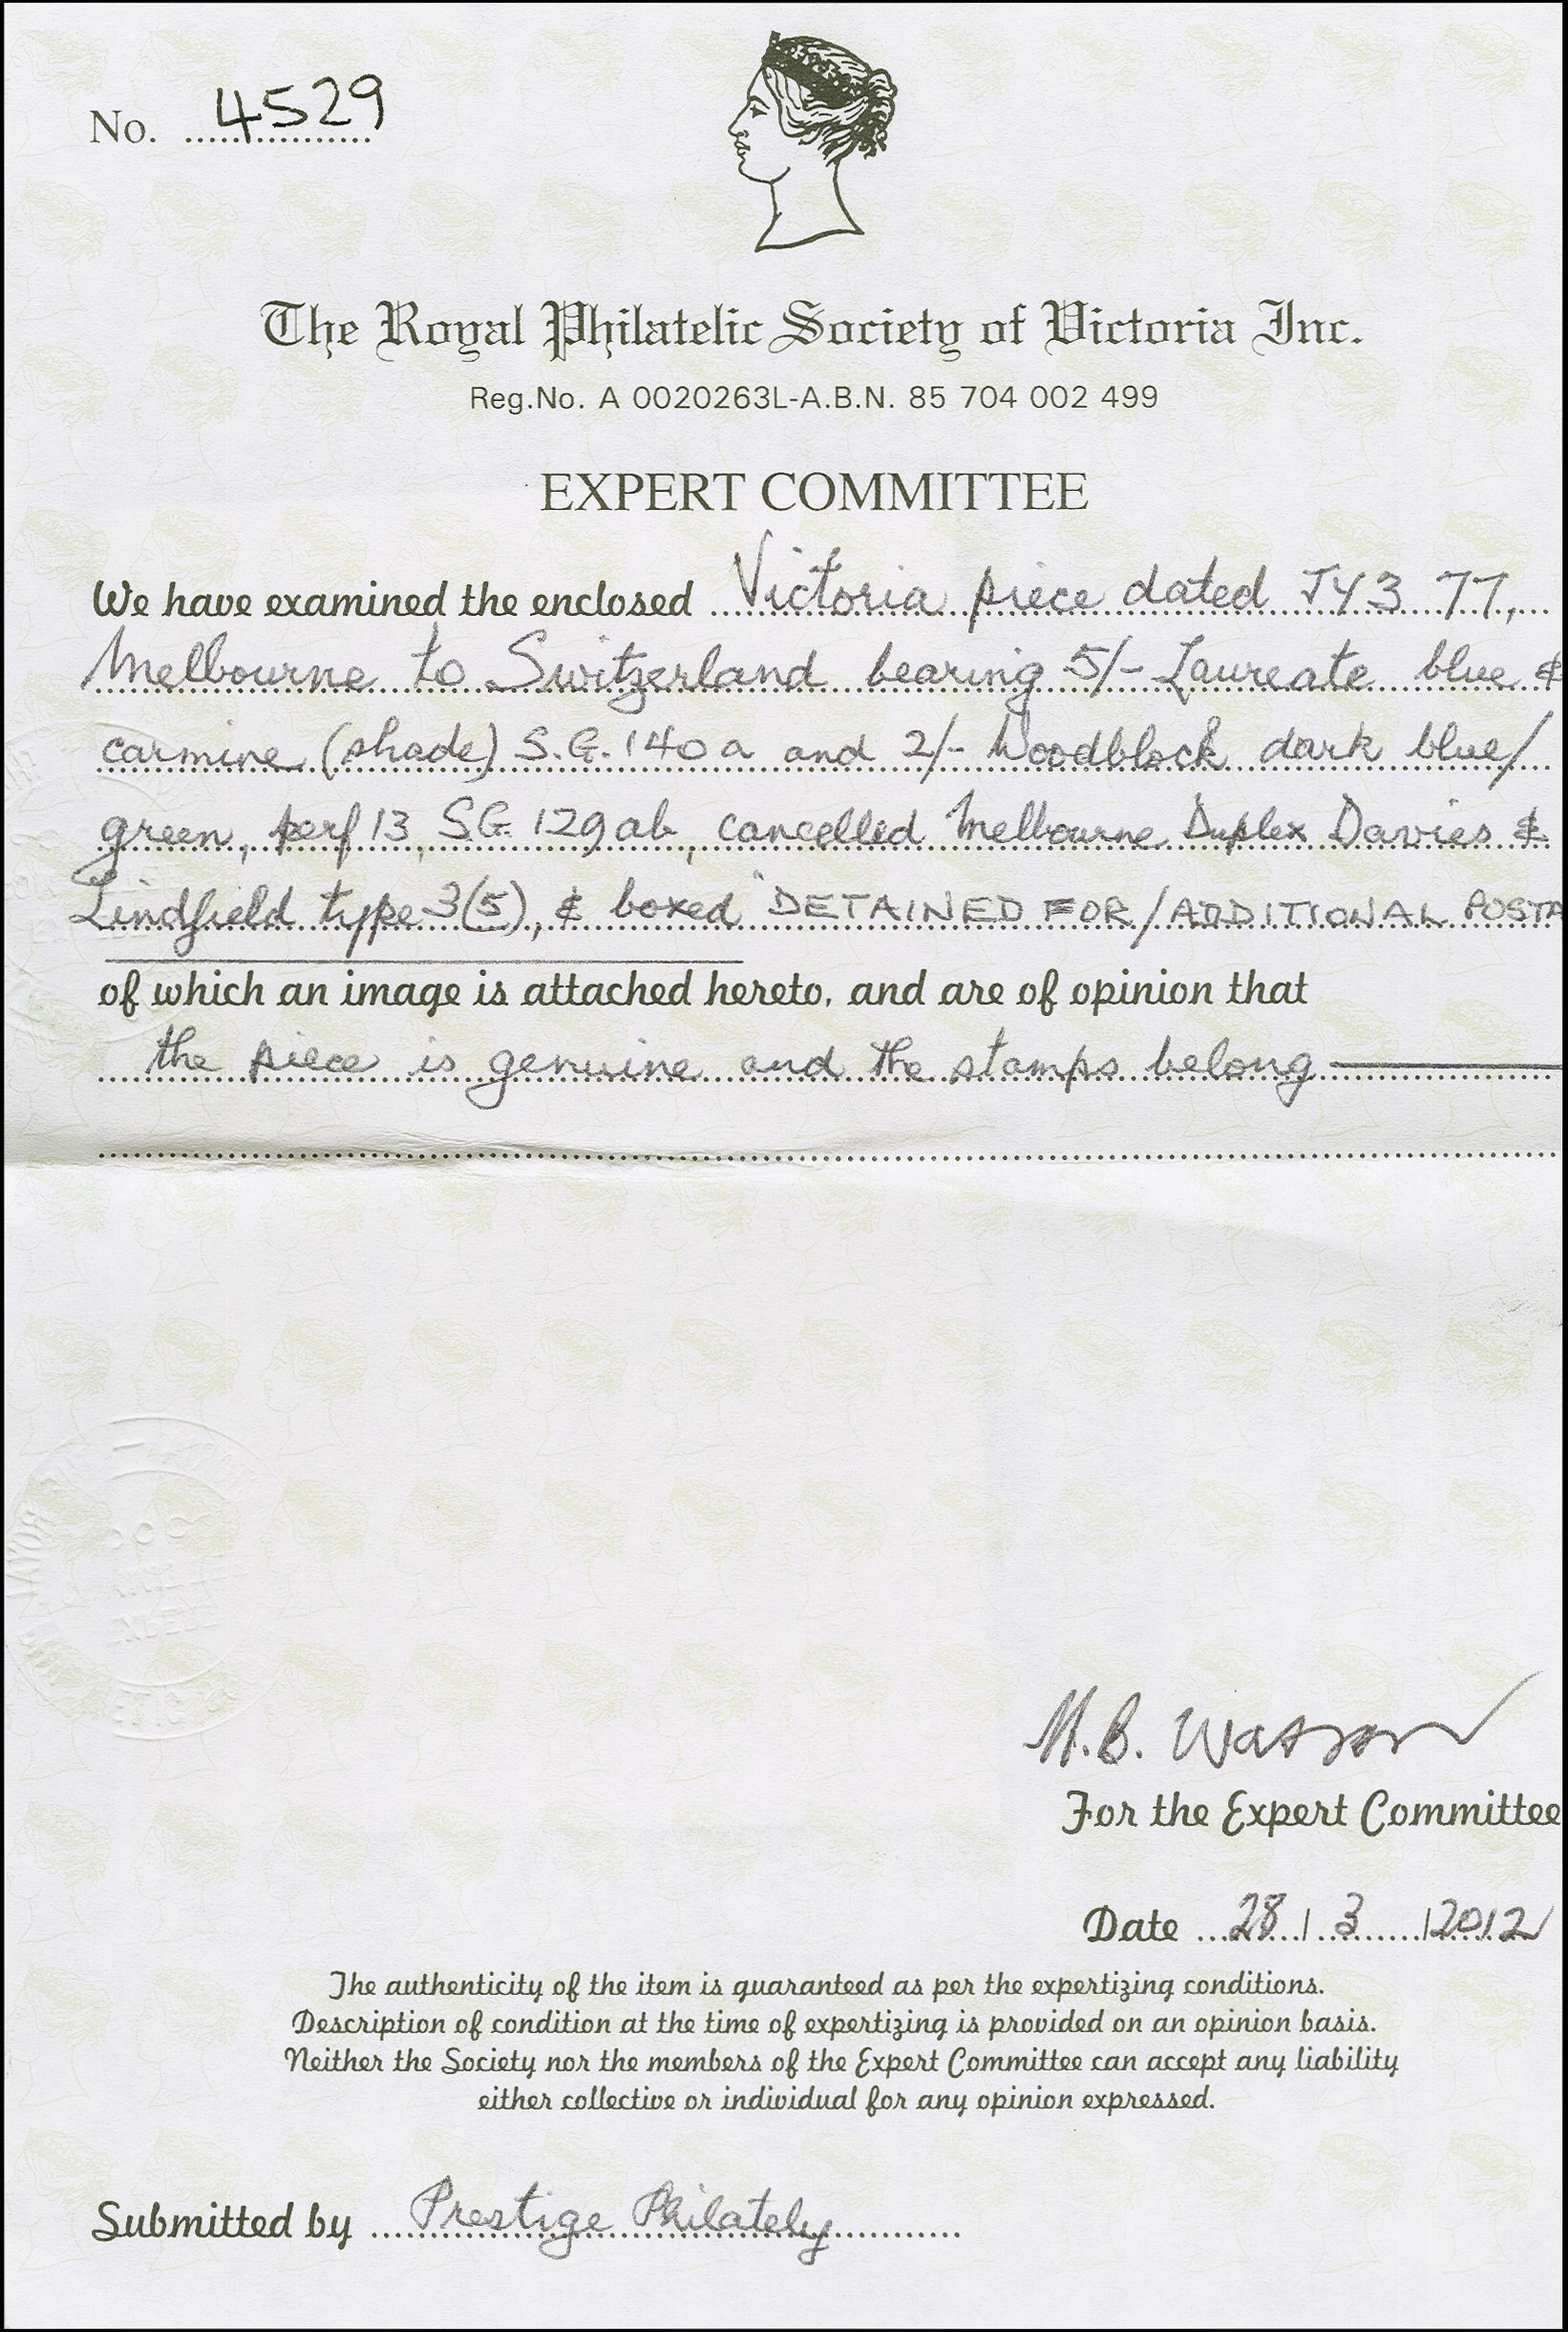 No. 4529
The Royal Philatelic Society of Victoria Inc.
Reg.No. A 0020263L-A.B.N. 85 704 002 499
EXPERT COMMITTEE
We have examined the enclosed Victoria piece dated JY 3 77,
Melbourne to Switzerland bearing 5/- Laureate blue &
carmine (shade) S.G. 140a and 2/- Woodblock dark blue/
green, perf 13, SG. 129ab, cancelled Melbourne Duplex Davies &
Lindfield type 3(5), & boxed "DETAINED FOR/ADDITIONAL POSTA
of which an image is attached hereto, and are of opinion that
the piece is genuine and the stamps belong
M.B. Watson
For the Expert Committee
Date 28 / 3 / 2012
The authenticity of the item is guaranteed as per the expertizing conditions.
Description of condition at the time of expertizing is provided on an opinion basis.
Neither the Society nor the members of the Expert Committee can accept any liability
either collective or individual for any opinion expressed.
Submitted by Prestige Philately